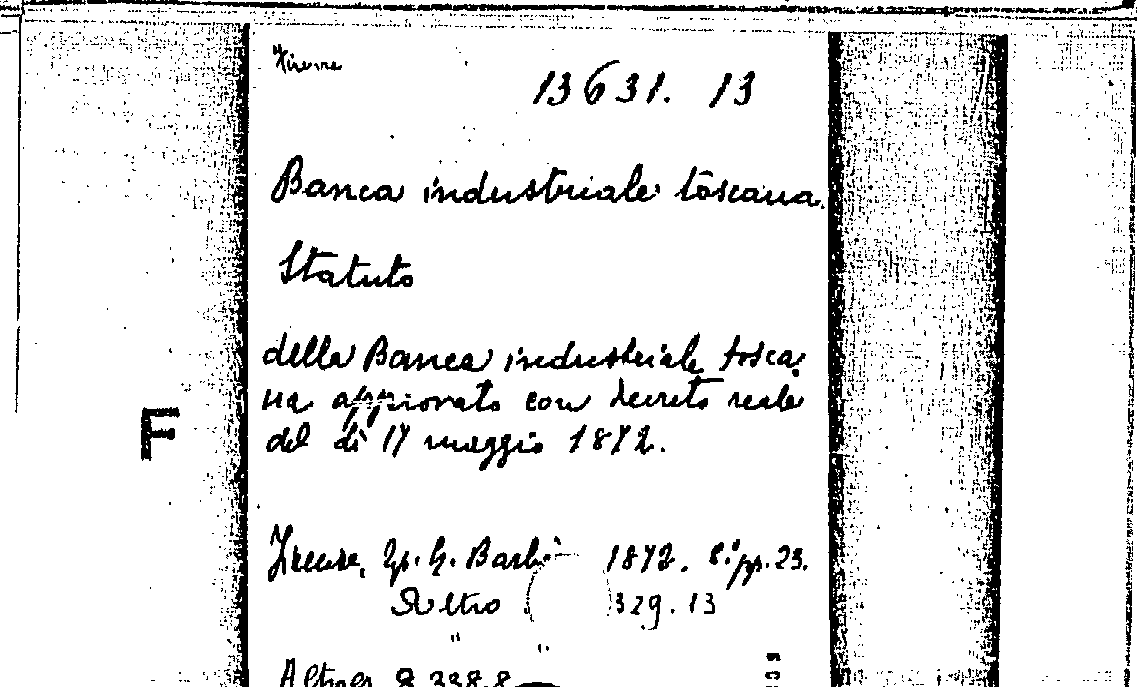 Firenze
13631. 13
Banca industriale toscana.
Statuto
della Banca industriale tosca,
na approvato con decreto reale
del dì 17 maggio 1872.
F
Firenze, Tip. G. Barbè 1872. 8.° pp. 23.
Altro 329.13
" "
Altro 8.338.8